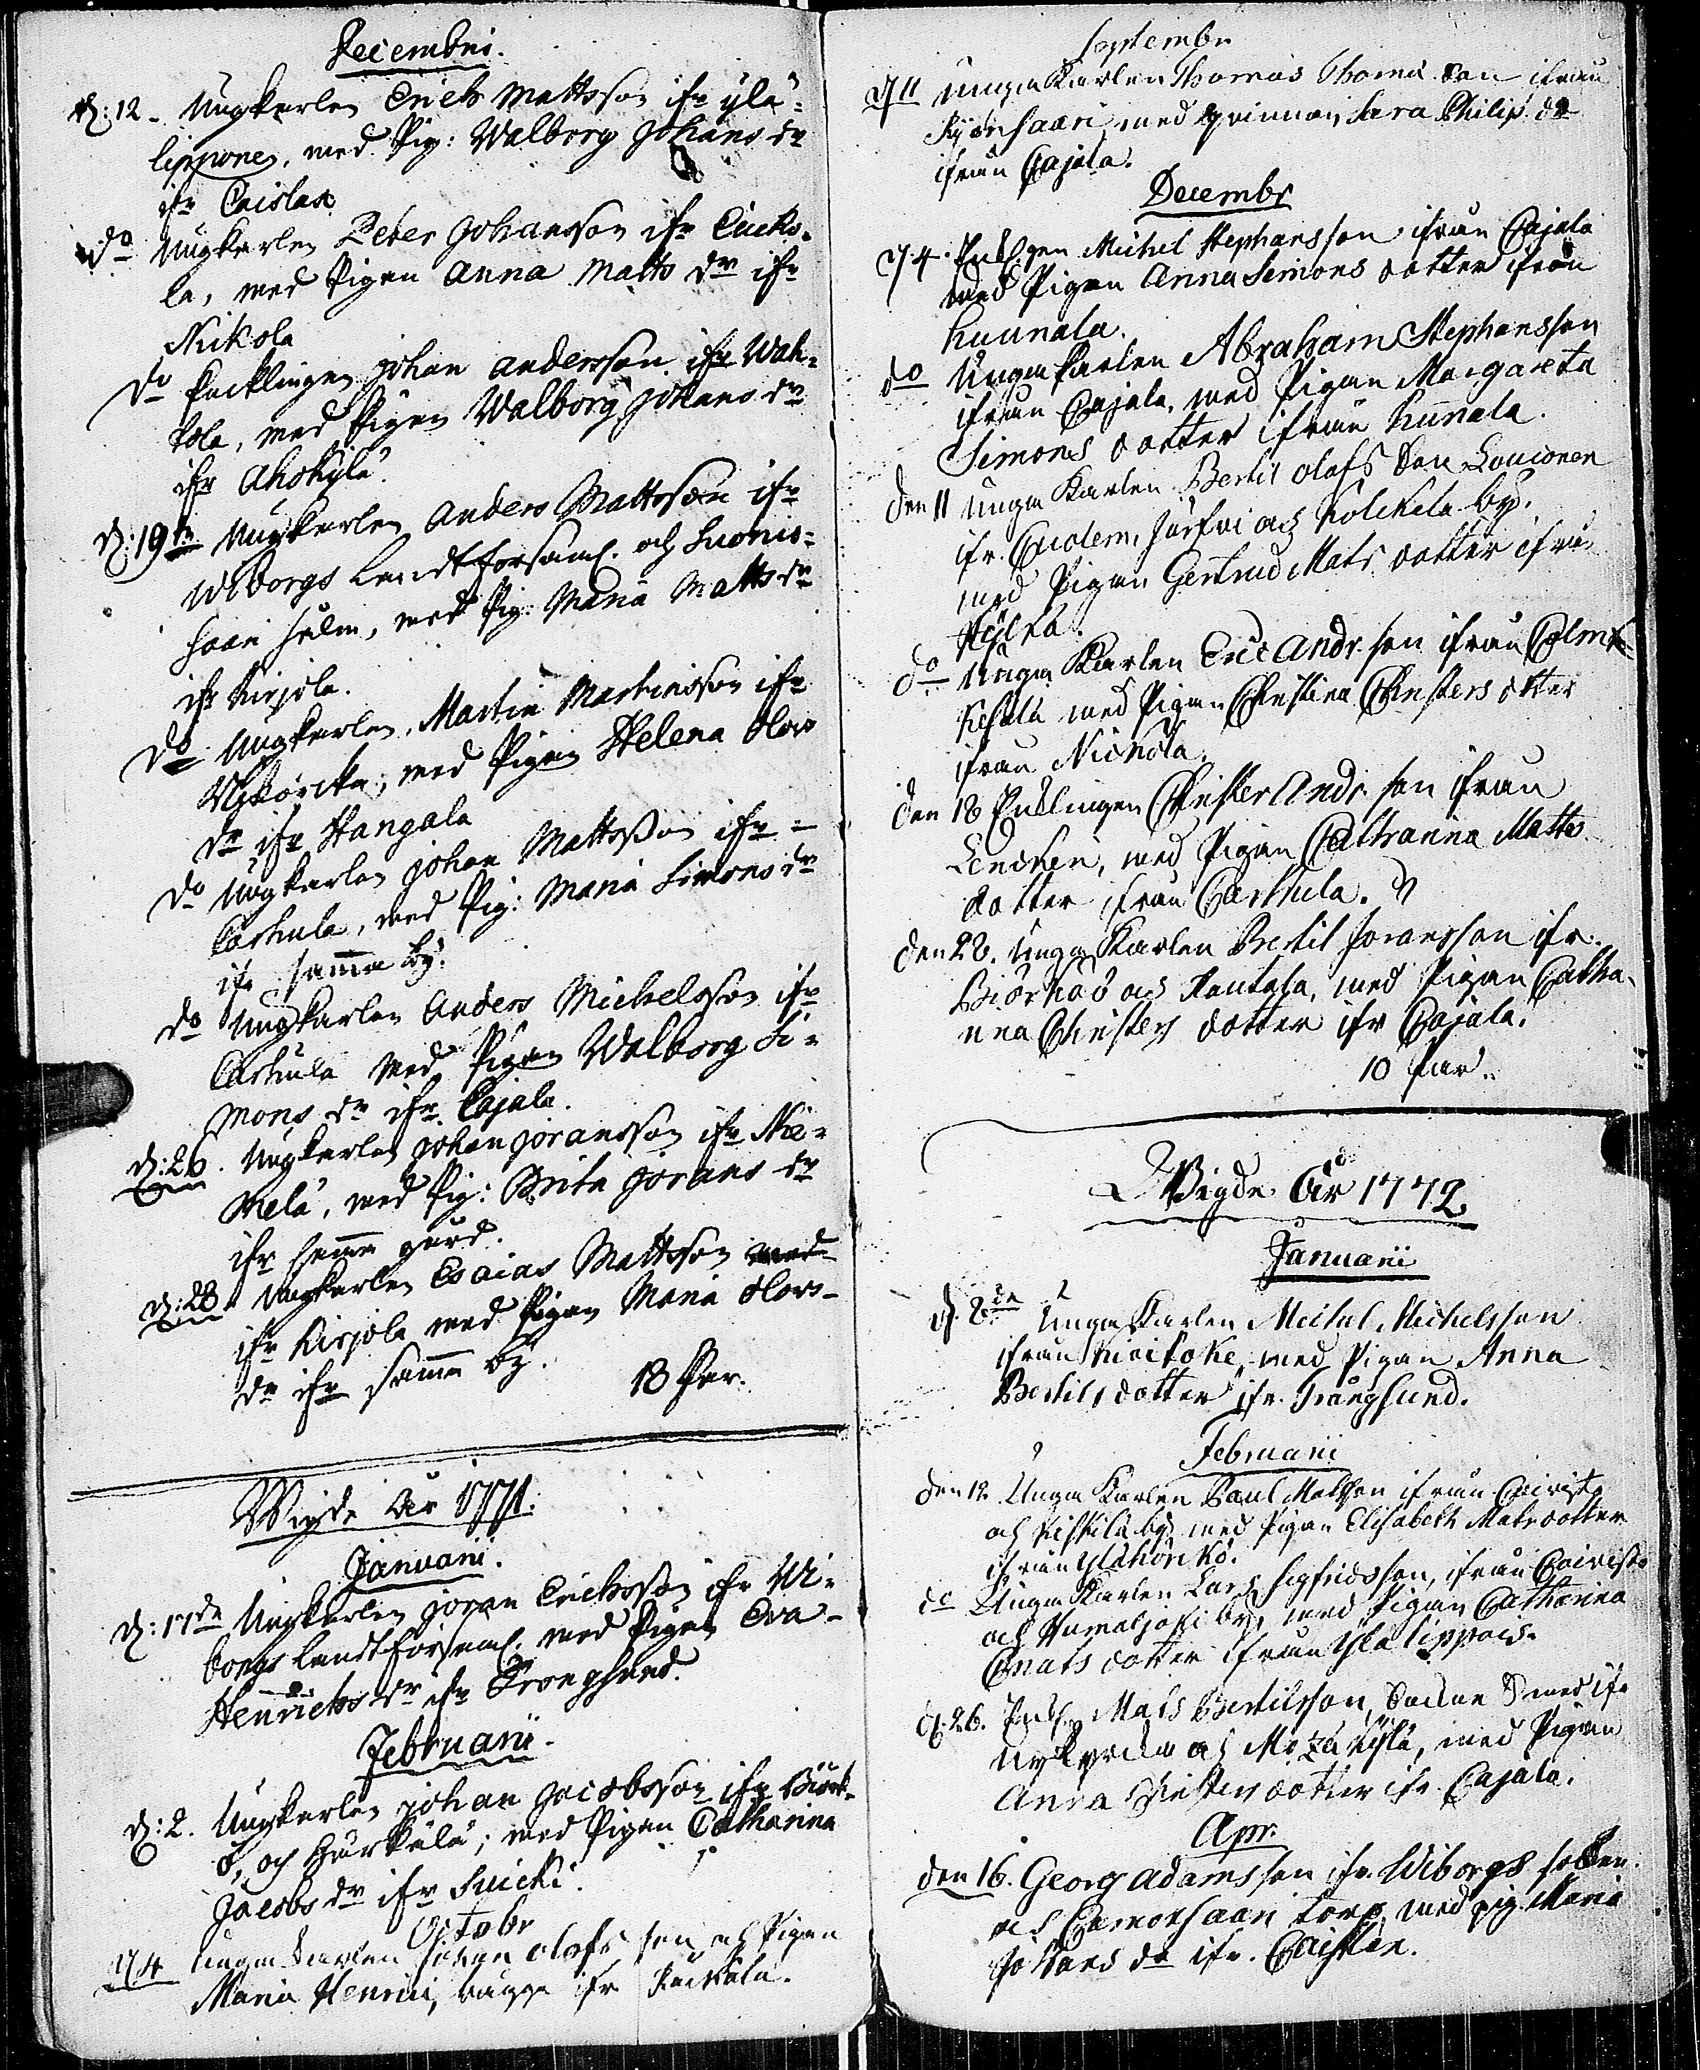 Decembri.
d: 12. Ungkarlen Erich Mattsson ifr Ylä-
lippone, med Pig: Walborg Johans dr
ifr Caislax
do Ungkarlen Peter Johansson ifr
la, med Pigan Anna Matts dr ifr
Nikola
do Encklingen Johan Andersson ifr Wah-
tola, med Pigan Walborg Johans dr
ifr Ahokylä.
d: 19de Ungkarlen Anders Mattsson ifr
Wiborgs Landtförsaml. och Suonis-
saari med Pig: Maria Matts dr
ifr Kirjola.
do Ungkarlen Martin Martinsson ifr
med Pigan Helena Olofs
dr ifr Hangala
do Ungkarlen Johan Mattsson ifr
Carhula, med Pig: Maria Simons dr
ifr samma by.
do Ungkarlen Anders Michelsson ifr
Carhula med Pigan Walborg Si-
mons dr ifr Cajala.
d: 26. Ungkarlen Johan Göransson ifr Nie-
melä, med Pig: Brita Görans dr
ifr samma gård.
d: 28. Ungkarlen Esaias Mattsson med
ifr Kirjola med Pigan Maria Olofs
dr ifr samma by.
18 Par.
Wigde År 1771.
Januarii.
d: 17de Ungkarlen Göran Erichsson ifr Wi-
borgs Landtförsaml. med Pigan Eva
Henrichs dr ifr Trongsund.
Februarii.
d: 2. Ungkarlen Johan Jacobsson ifr Biörk-
ö, och Härkälä; med Pigan Catharina
Jacobs dr ifr Suicki.
Octobr
d 4 Unga Karlen Johan Olofs son och Pigan
Maria Henrici, bägge ifr
Septembr
d 11 Unga Karlen Thomas Thomæ Son ifrån
med Qvinnan Sara Philip. dr
ifrån Cajala.
Decembr
d 4. Enkl.gen Michel Stephansson ifrån Cajala
med Pigan Anna Simons dotter ifrån
Kunnala.
do Unga Karlen Abraham Stephansson
ifrån Cajala, med Pigan Margareta
Simons dotter ifrån Kunnala.
den 11 Unga Karlen Bertil Olofs Son Louconen
ifr. Järfvi och Kolckela by.
med Pigan Gertrud Mats dotter ifrån
do Unga Karlen Eric Andr. son ifrån Colmi-
kesälä med Pigan Christina Christers dotter
ifrån Nickola.
den 18 Enklingen Christer Andr. son ifrån
med Pigan Catharina Matts
dotter ifrån Carhula.
den 28. Unga Karlen Bertil Joransson ifr.
Biörkö och Rautala, med Pigan Catha-
rina Christers dotter ifr Cajala.
10 Par.
Wigde År 1772.
Januarii
d. 8de Unga Karlen Michel Michelsson
ifrån med Pigan Anna
Bertils dotter ifr. Trångsund.
Februarii
den 12 Unga Karlen Paul Matsson ifrån Coivisto
och by med Pigan Elisabeth Mats dotter
ifrån
do Unga Karlen Lars Sigfridsson, ifrån Coivisto
och Humaljoki by, med Pigan Catharina
Mats dotter ifrån Ylälippois.
d. 26. Enkl. Mats Bertilsson, Socken Smed ifr
Nykyrcka och med Pigan
Anna Christers dotter ifr. Cajala.
Apr.
den 16. Georg Adamsson ifr. Wiborgs socken
och torp, med pig. Maria
Johans dr ifr.